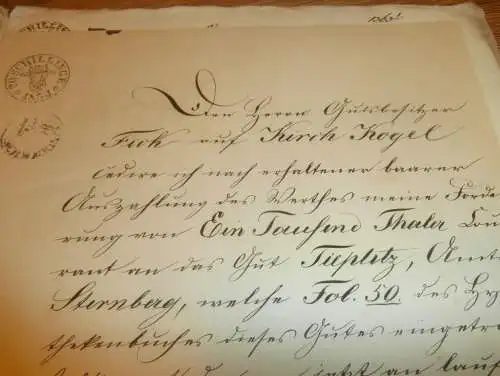 Den Herrn Gutsbesitzer
Fick auf Kirch Kogel
cedire ich nach erhaltener baarer
Auszahlung des Werthes meine Forde
rung von Ein Tausend Thaler Cou
rant an das Gut Tieplitz, Amt
Sternberg, welche Fol. 50. des Hy
thekenbuches dieses Gutes eingetra